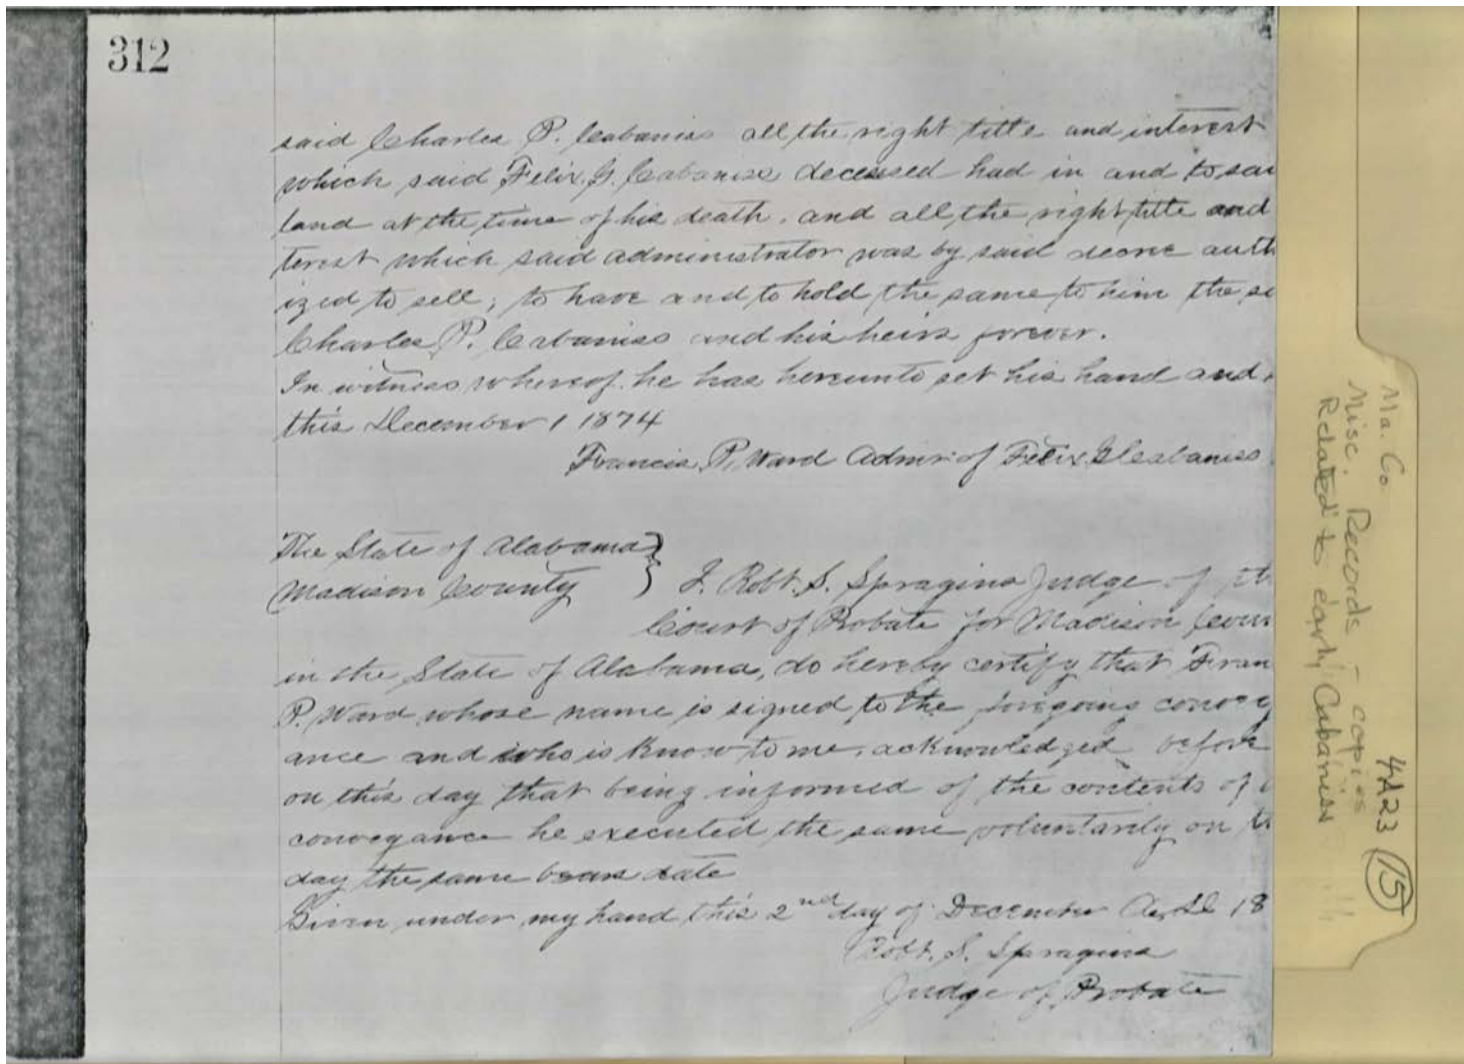 312
said Charles P. Cabaniss all the right title and interest
which said Felix. G. Cabaniss deceased had in and to sai
land at the time of his death, and all the right title and
terest which said administrator was by said decree auth
ized to sell; to have and to hold the same to him the sa
Charles P. Cabaniss and his heirs forever.
In witness whereof he has hereunto set his hand and
this December 1 1874
Francis P. Ward Admr. of Felix G Cabaniss
The State of Alabama
Madison County } I. Robt. S. Spragins Judge of th
Court of Probate for Madison Coun
in the State of Alabama, do hereby certify that Fran
P. Ward whose name is signed to the foregoing convey
ance and who is know to me, acknowledged before
on this day that being informed of the contents of
conveyance he executed the same voluntarily on th
day the same bears date
Given under my hand this 2nd day of December A.D 18
Robt. S. Spragins
Judge of Probate
Ma. Co.
Misc. Records - copies
Related to early Cabaniss
4A23 (15)